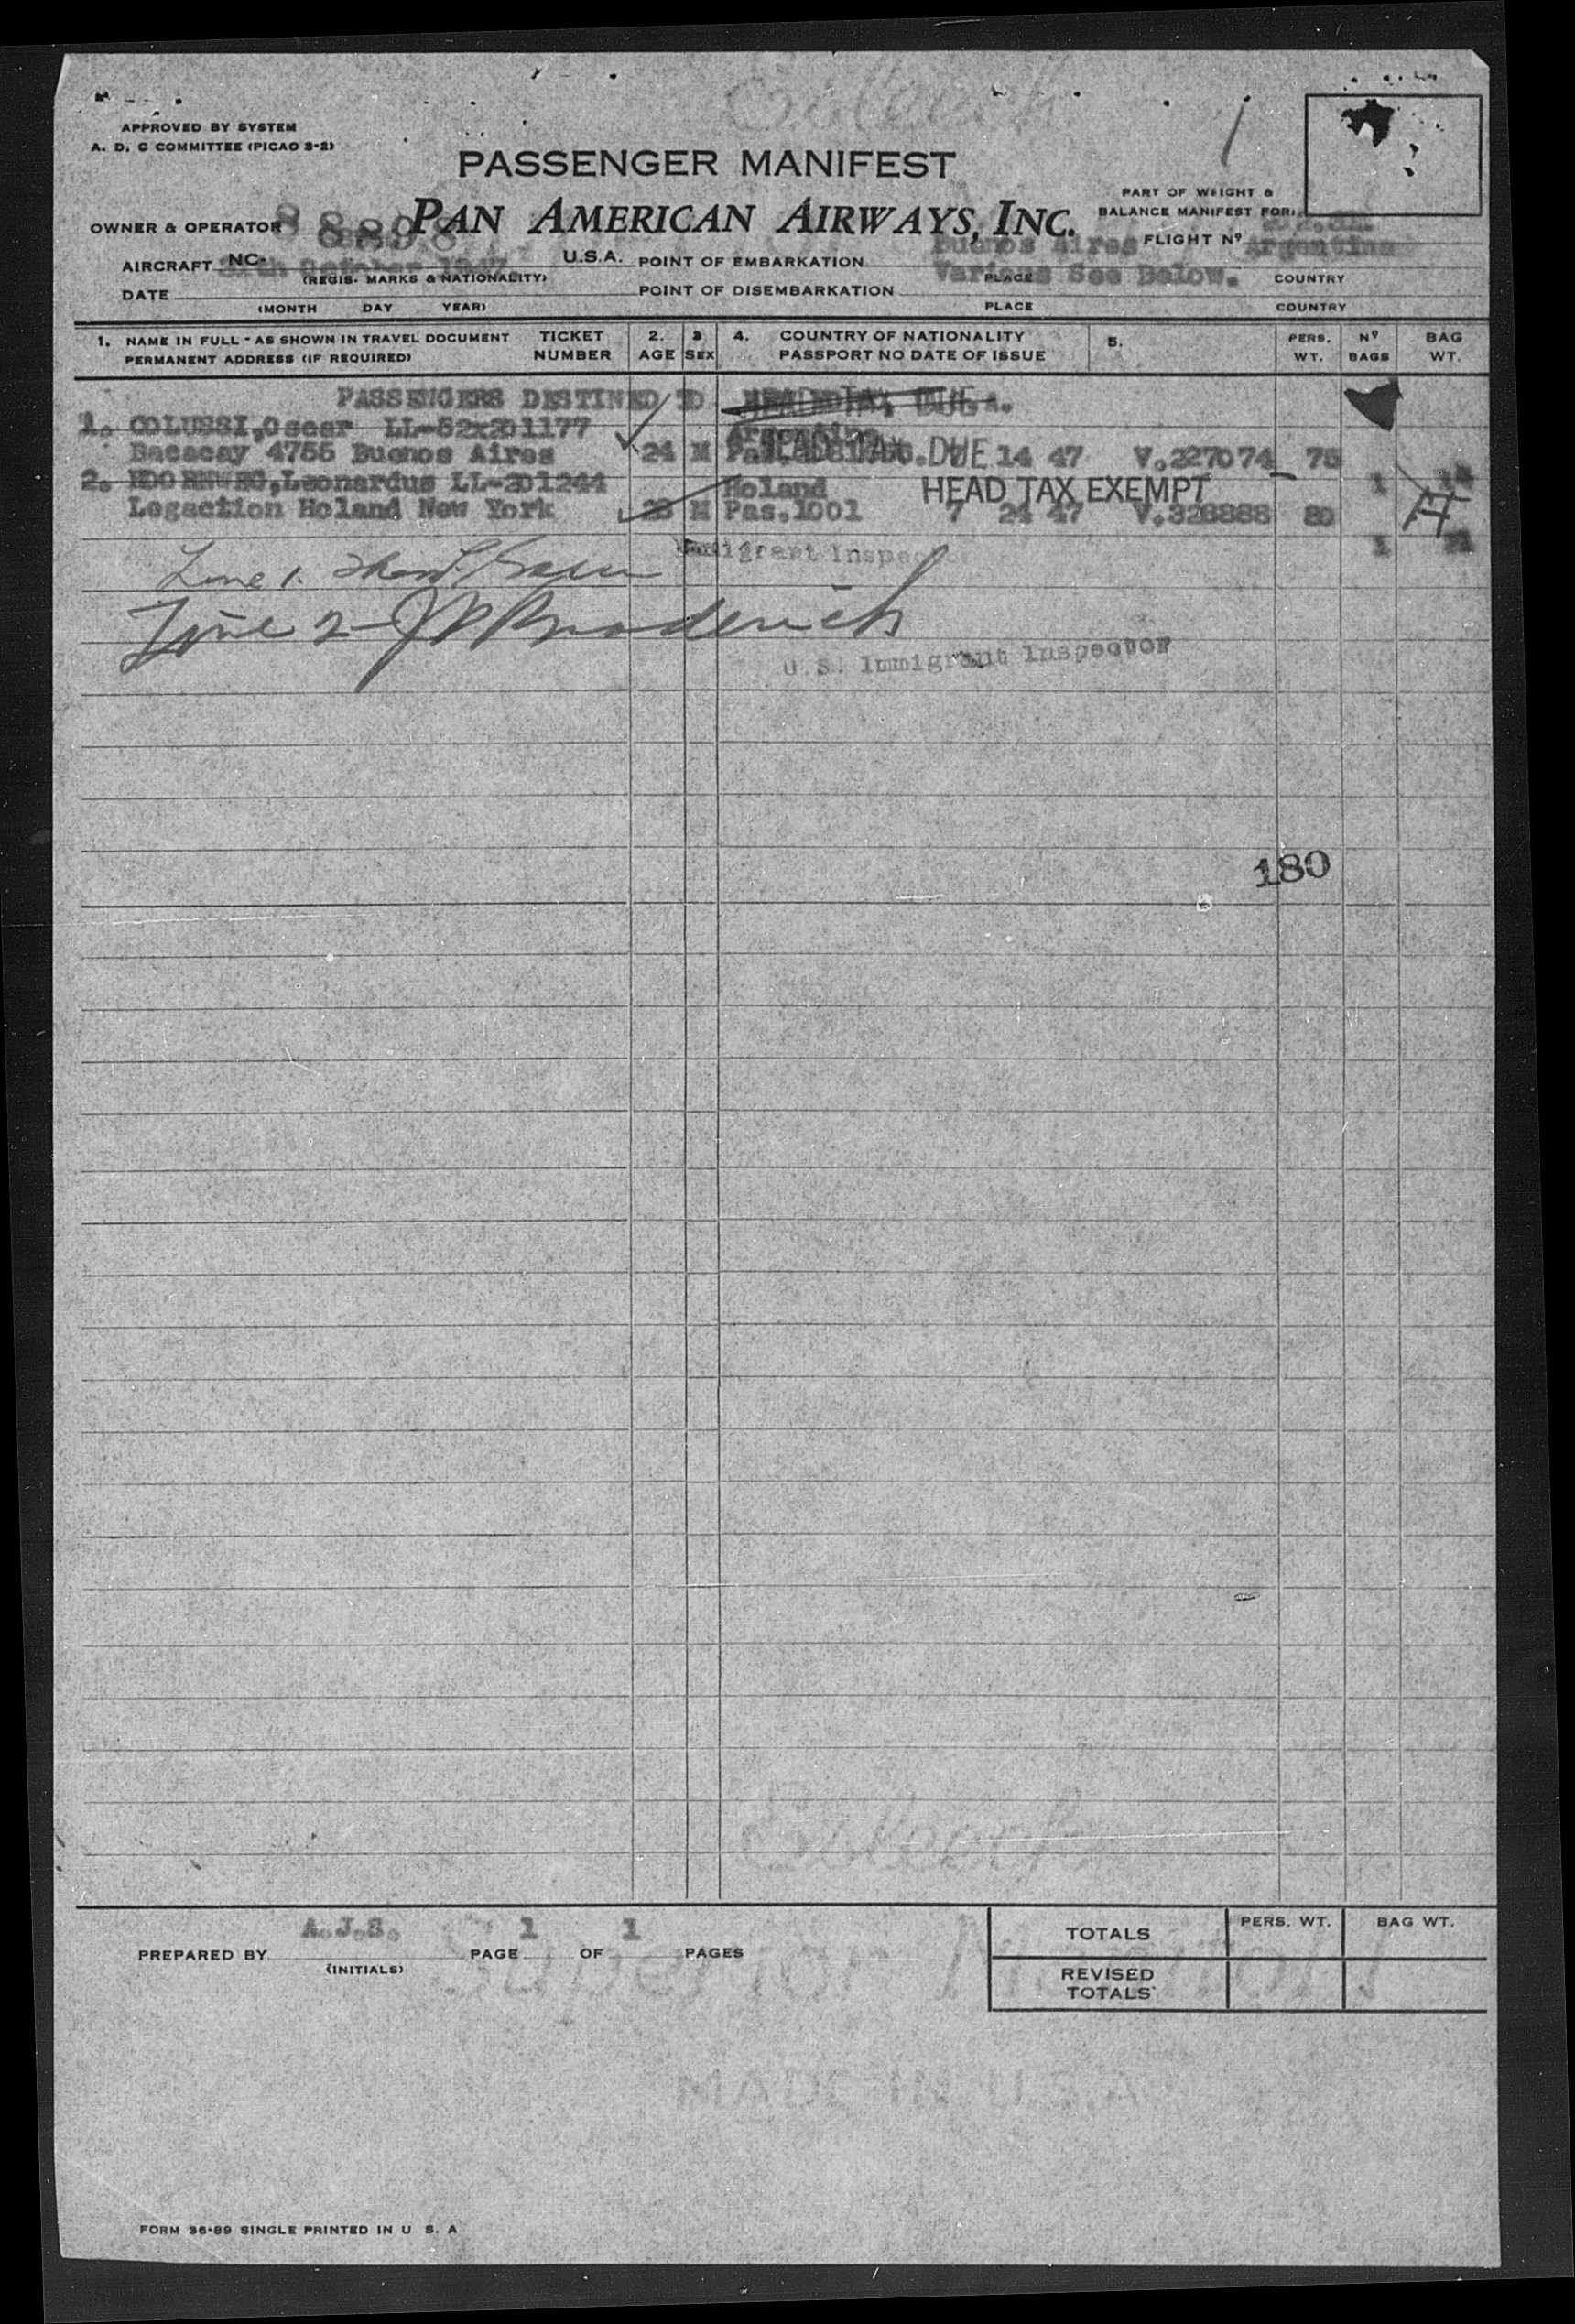 APPROVED BY SYSTEM
A. D. C COMMITTEE (PICAO 3-2)
PASSENGER MANIFEST
PART OF WEIGHT &
BALANCE MANIFEST FOR:
OWNER & OPERATOR PAN AMERICAN AIRWAYS, INC.
FLIGHT Nº
AIRCRAFT NC- U.S.A. POINT OF EMBARKATION Buenos Aires Argentina
(REGIS. MARKS & NATIONALITY) PLACE COUNTRY
DATE October 1947 POINT OF DISEMBARKATION Various See Below.
(MONTH DAY YEAR) PLACE COUNTRY
1. NAME IN FULL - AS SHOWN IN TRAVEL DOCUMENT TICKET 2. 3 4. COUNTRY OF NATIONALITY 5. PERS. Nº BAG
PERMANENT ADDRESS (IF REQUIRED) NUMBER AGE SEX PASSPORT NO DATE OF ISSUE WT. BAGS WT.
PASSENGERS DESTINED TO
1. COLUSSI, Oscar LL-52x201177 Argentina
Bacacay 4755 Buenos Aires 24 M DUE 14 47 V.227074 75
2. HOORNWEG, Leonardus LL-201244 Holand HEAD TAX EXEMPT 1
Legaction Holand New York 28 M Pas.1001 7 24 47 V.328888 80
1 21
Immigrant Inspector
Line 1.
Line 2- J P Broderick
U. S. Immigrant Inspector
180
A.J.S. 1 1
PREPARED BY PAGE OF PAGES
(INITIALS)
TOTALS PERS. WT. BAG WT.
REVISED
TOTALS
MADE IN U.S.A.
FORM 36-89 SINGLE PRINTED IN U S. A